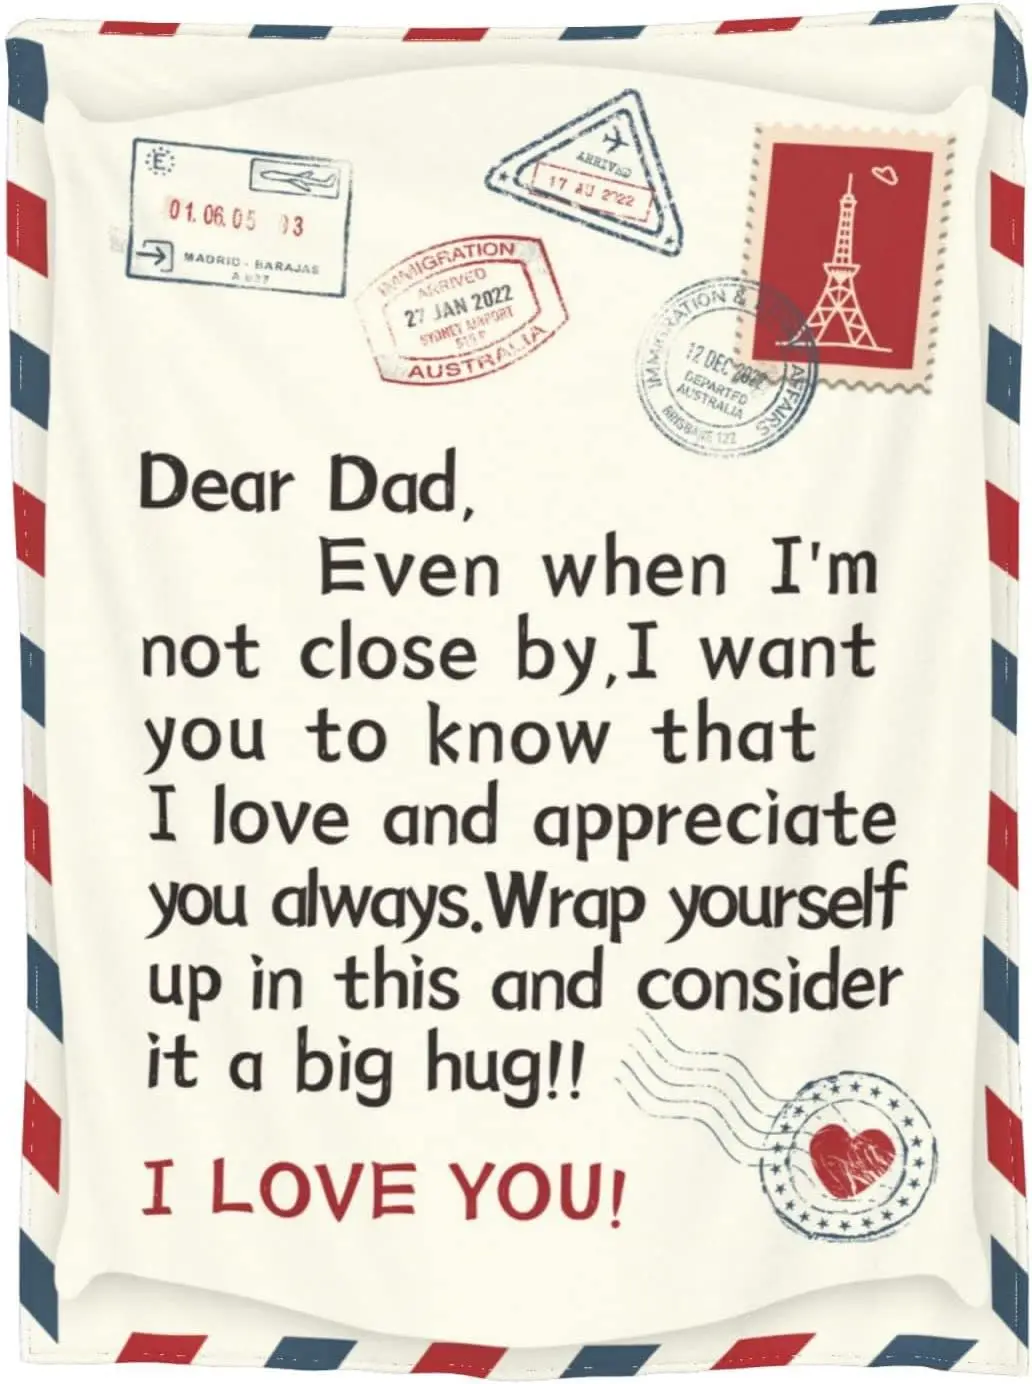 E
01.06.05 03
MADRID - BARAJAS
ARRIVED
17 AU 2022
IMMIGRATION
ARRIVED
27 JAN 2022
SYDNEY AIRPORT
AUSTRALIA
IMMIGRATION &
AFFAIRS
12 DEC
DEPARTED
AUSTRALIA
BRISBANE
Dear Dad,
Even when I'm
not close by,I want
you to know that
I love and appreciate
you always.Wrap yourself
up in this and consider
it a big hug!!
I LOVE YOU!